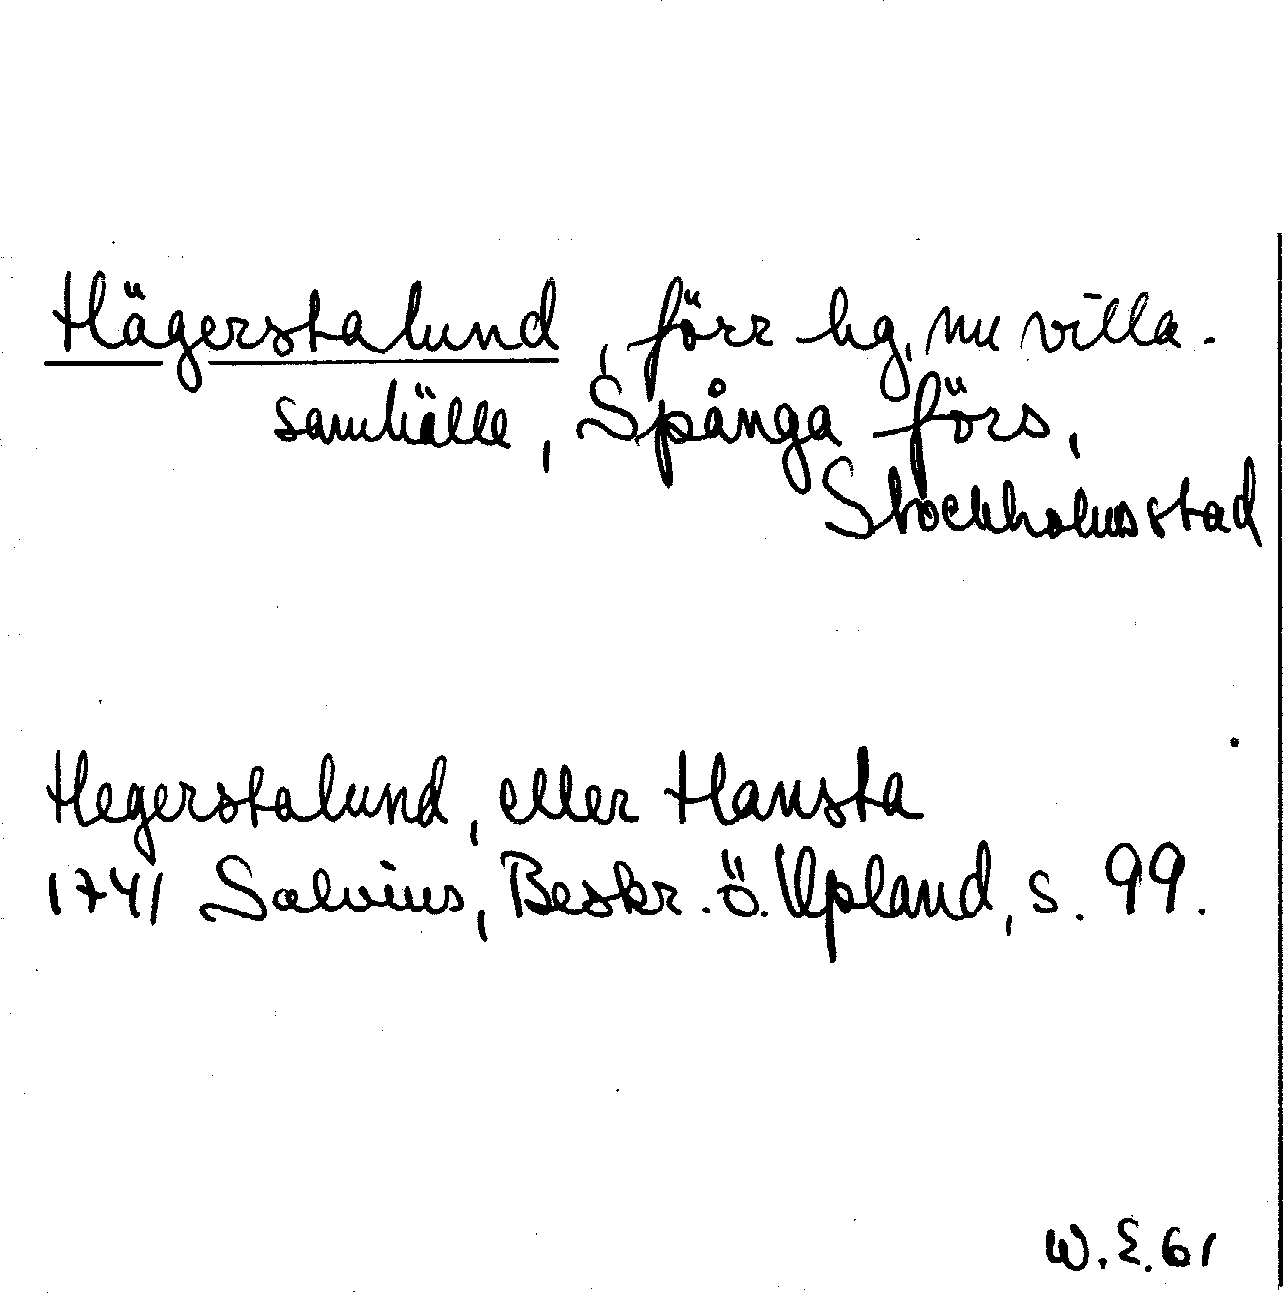 Hägerstalund, förr hg, nu villa-
samhälle, Spånga förs,
Stockholmsstad
Hegerstalund, eller Hansta
1741 Salvius, Beskr. ö. Upland, s. 99.
W.E.61